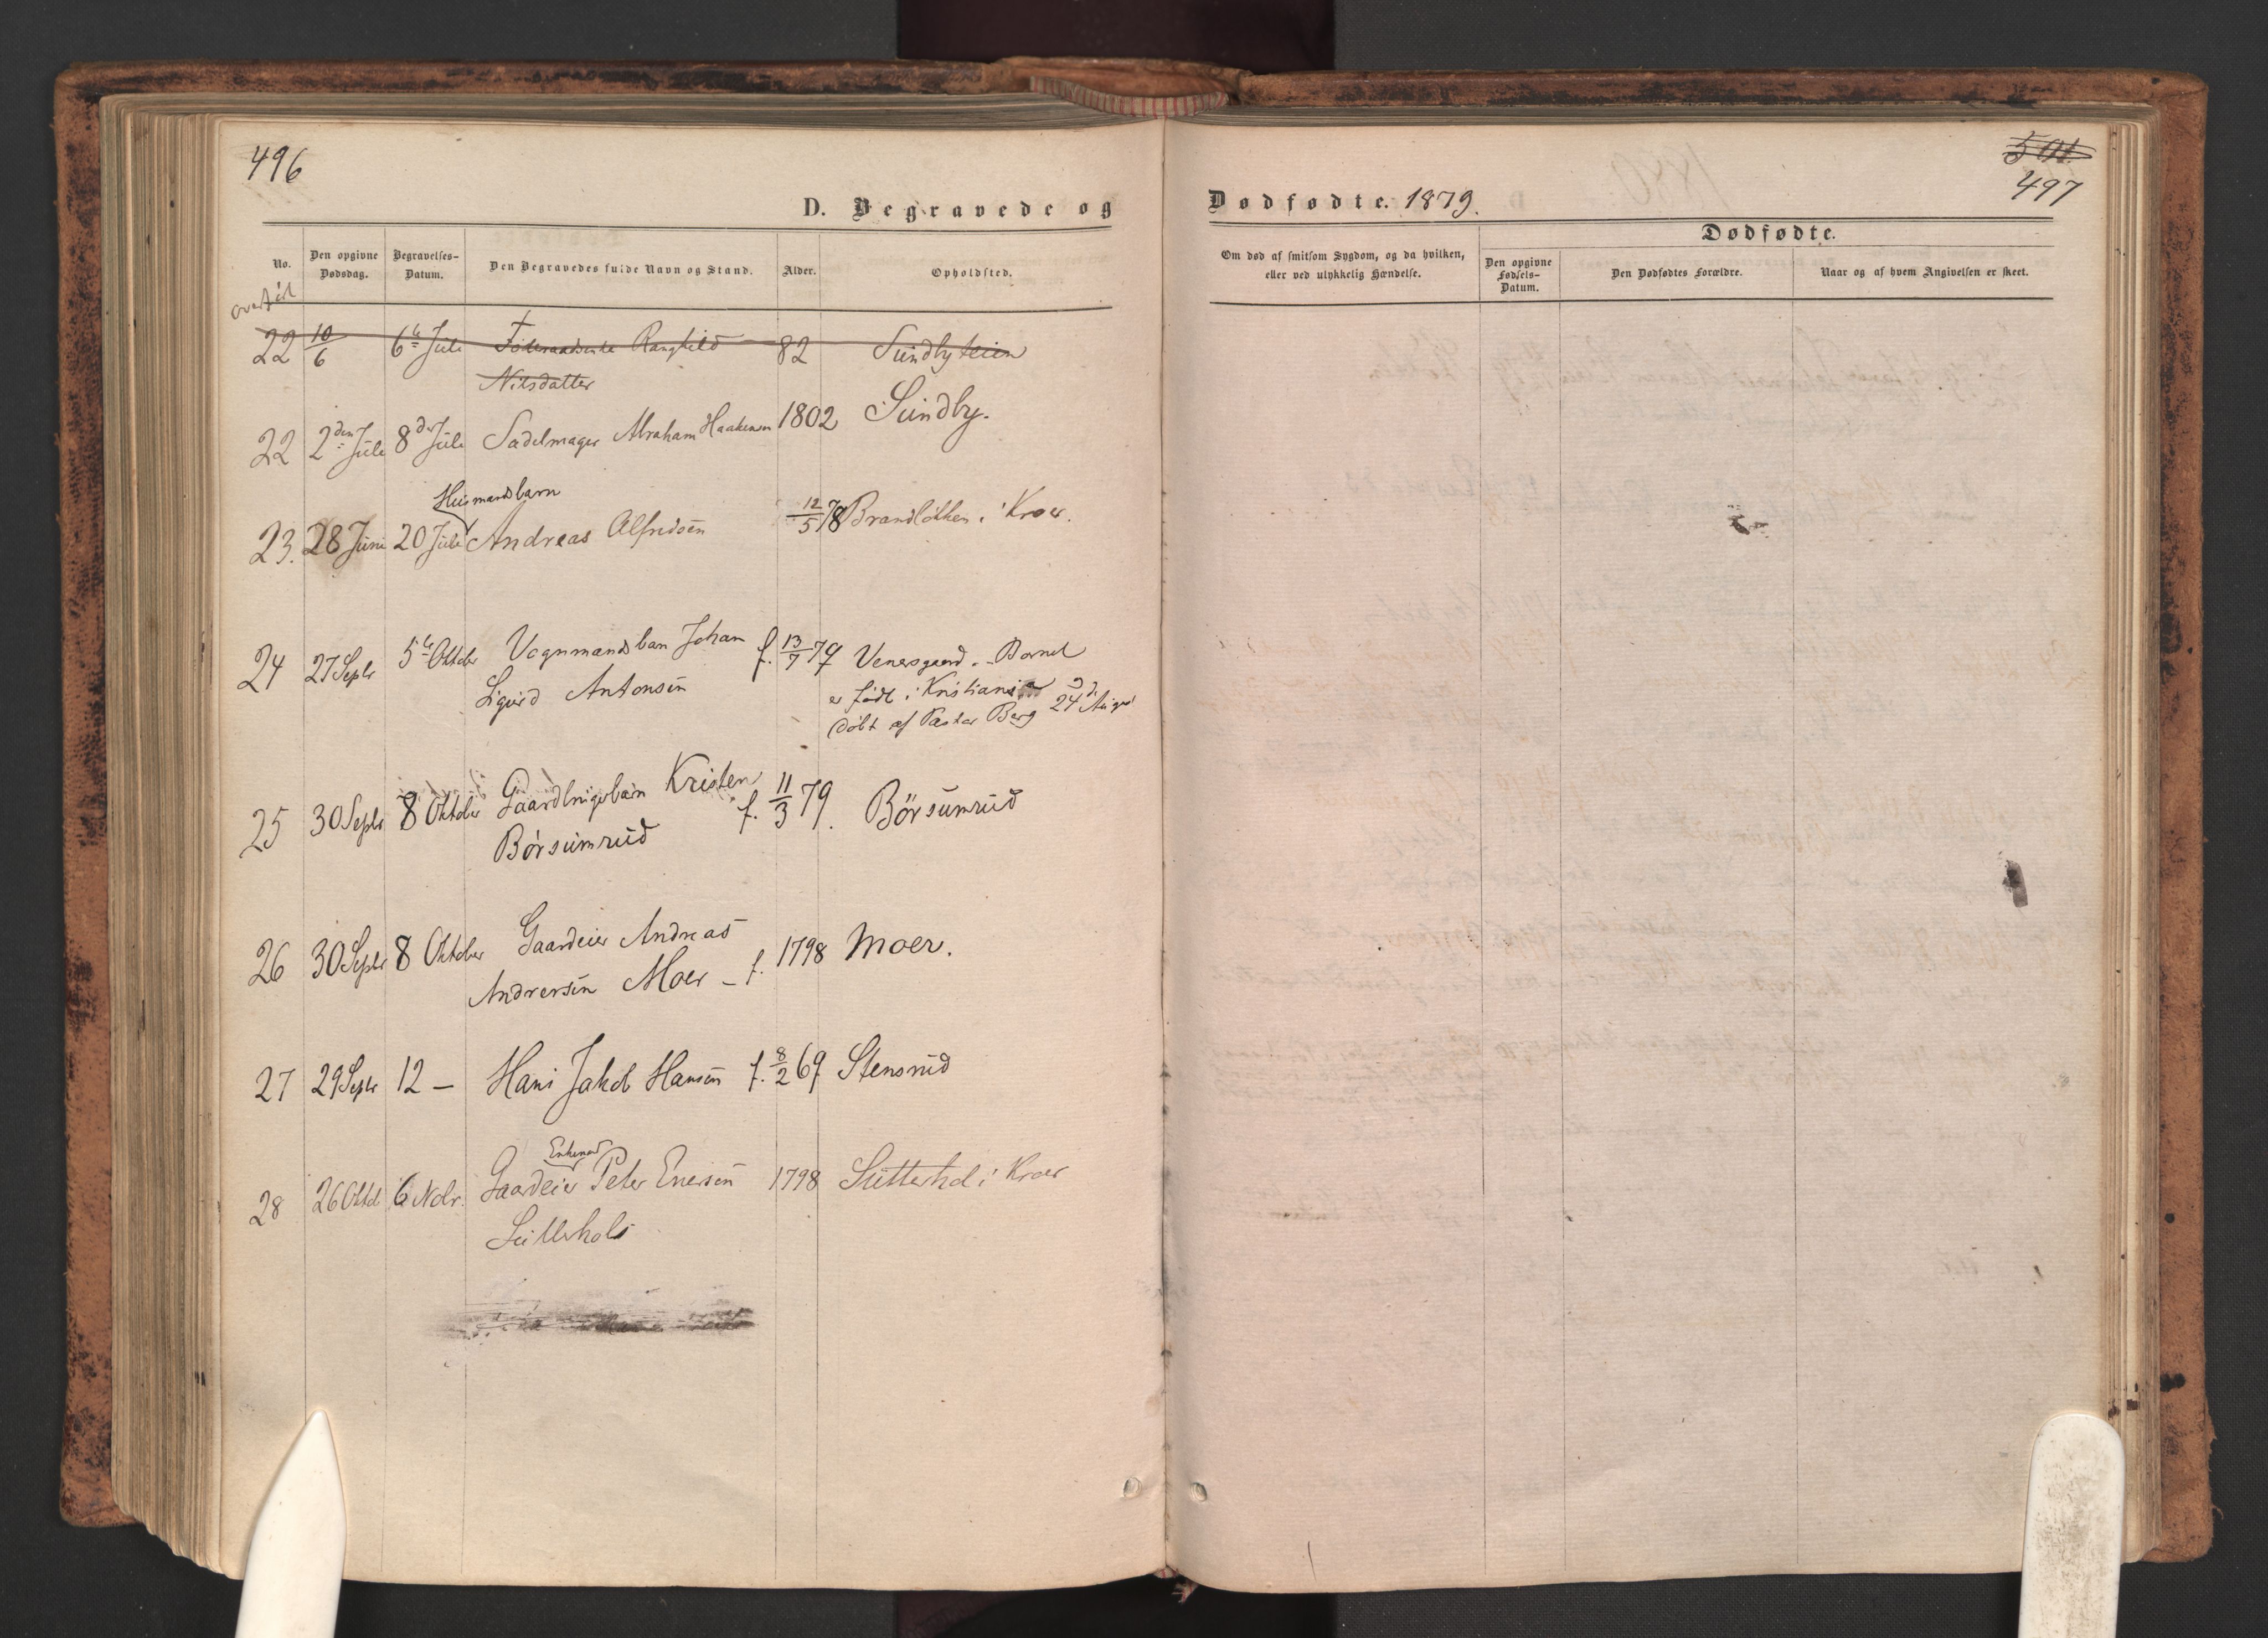 496
D. Begravede og
No.
Den opgivne Dødsdag.
Begravelses-Datum.
Den Begravedes fulde Navn og Stand.
Alder.
Opholdsted.
overført
22 10/6 6te Juli Føderaadsenke Ranghild 82 Sundbyteien
Nilsdatter
22 2den Juli 8de Juli Sadelmager Abraham Haakensen 1802 Sundby.
Husmandsbarn
23. 28 Juni 20 Juli Andreas Alfredsen 12/5 78 Brandløkken i Kroer.
24 27 Septr 5te Oktober Vognmandsbarn Johan f. 13/7 79 Venersgaard. - Barnet
Sigurd Antonsen er født i Kristiania
døbt af Pastor Berg 24d August
25 30 Septr 8 Oktober Gaardbrugerbarn Kristen f. 11/3 79. Börsumrud
Börsumrud
26 30 Septr 8 Oktober Gaardeier Andreas 1798 Moer.
Andreersen Moer - f.
27 29 Septr 12 - Hans Jakob Hansen f. 8/2 69 Stensrud
Enkemand
28 26 Oktb 6 Novbr. Gaardeier Peter Enersen 1798 Sutterhol i Kroer
Sutterhol
501
497
Dødfødte. 1879.
Om død af smitsom Sygdom, og da hvilken,
eller ved ulykkelig Hændelse.
Dødfødte.
Den opgivne Fødsels-Datum.
Den Dødfødtes Forældre.
Naar og af hvem Angivelsen er skeet.